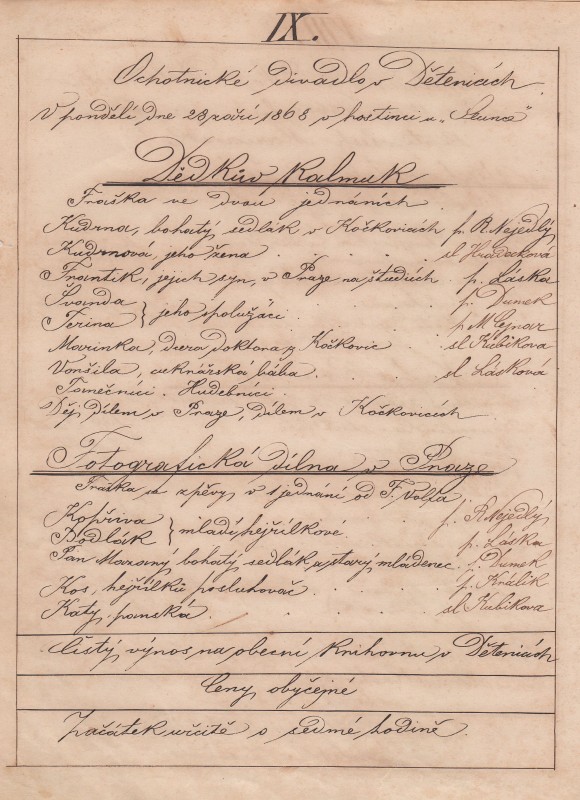 IX.
Ochotnické divadlo v Dětenicách.
V pondělí dne 28 září 1868 v hostinci u „Slunce"
Dědkův Kalmuk
Fraška ve dvou jednáních.
Kudrna, bohatý sedlák v Kočkovicích p. R Nejedlý
Kudrnová, jeho žena . . . . sl Hradecková
Frantík, jejich syn, v Praze na studiích . p. Láska
Švanda } jeho spolužáci . . . . p. Dumek
Ferina p M Cejnar
Marinka, dcera doktora z Kočkovic . . sl Kubikova
Vonšila, cuknářská bába . . . . sl Lásková
Tanečníci. Hudebníci.
Děj dílem v Praze, dílem v Kočkovicích
Fotografická dílna v Praze
Fraška se zpěvy v 1 jednání od F. Volfa
Kopřiva } mladí hejřílkové . . . p. R Nejedlý
Bodlák p. Láska
Pan Mazaný bohatý sedlák a starý mládenec . p. Dumek
Kos, hejřílků posluhovač . . . . p. Králik
Káty, panská . . . . sl Kubikova
Čistý výnos na obecní knihovnu v Dětenicích
Ceny obyčejné
Začátek určitě o sedmé hodině.